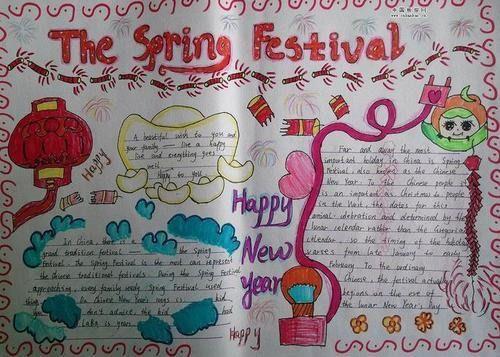 The Spring Festival
A beautiful wish to you and
your family —— live a happy
live and everything goes
well.
Happy to you
Happy
Happy
New
year
Happy
In China, there is a
grand tradition festival the Spring
Festival. The Spring Festival is the most can represent
the Chinese traditional festivals. During the Spring Festival
approaching, every family ready Spring Festival used
thing. In Chinese New Year's is kid
don't admire, the kid
Laba is years
Far and away the most
important holiday in China is Spring
Festival also known as the Chinese
New Year. To the Chinese people it
is as important as Christmas to people
in the West. The dates for this
animal celebration are determined by the
lunar calendar rather than the Gregorian
calendar, so the timing of the holiday
varies from late January to early
February. To the ordinary
Chinese, the festival actually
begins on the eve of
the lunar New Year's Day